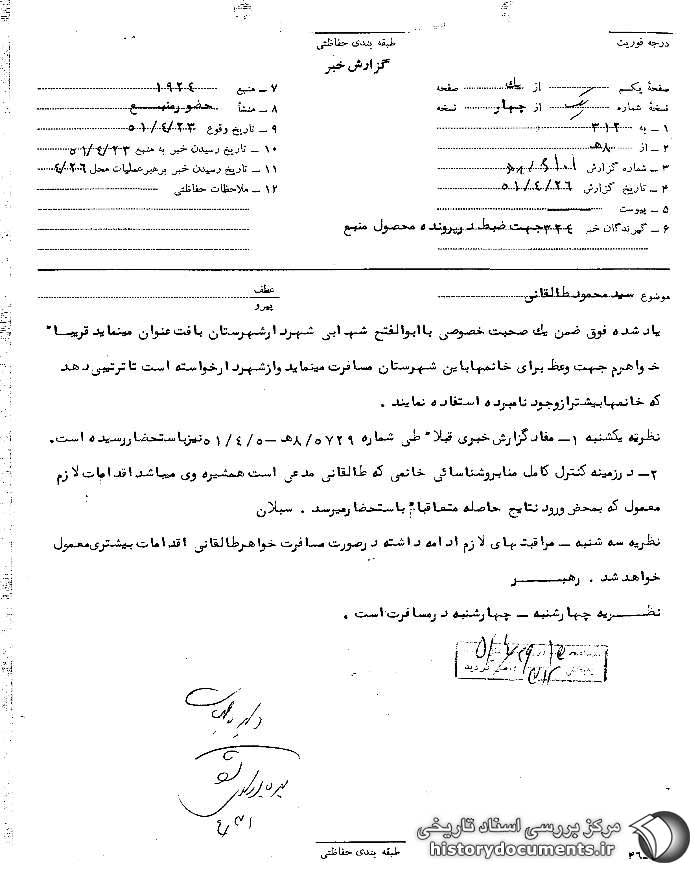 درجه فوریت
طبقه بندی حفاظتی
گزارش خبر
صفحهٔ یکم از یك صفحه
نسخهٔ شماره از چهار نسخه
۱ـ به ۳۱۲
۲ـ از ۸هـ
۳ـ شماره گزارش
۴ـ تاریخ گزارش ۵۱/۴/۲۶
۵ـ پیوست
۶ـ گیرندگان خبر ۳۳۴جهت ضبط درپرونده محصول منبع
۷ـ منبع ۱۹۲۴
۸ـ منشأ حضورمنبع
۹ـ تاریخ وقوع ۵۱/۴/۲۳
۱۰ـ تاریخ رسیدن خبر به منبع ۵۱/۴/۲۳
۱۱ـ تاریخ رسیدن خبر برهبرعملیات محل ۴/۲۶
۱۲ـ ملاحظات حفاظتی
موضوع سیدمحمودطالقانی
عطف
پیرو
یاد شده فوق ضمن یك صحبت خصوصی باابوالفتح شهابی شهردارشهرستان بافت‌عنوان مینماید قریباً
خواهرم جهت وعظ برای خانمهاباین شهرستان مسافرت مینماید وازشهردارخواسته است تاترتیبی دهد
که خانمهابیشترازوجود نامبرده استفاده نمایند .
نظریه یکشنبه ۱ـ مفادگزارش‌خبری قبلاً طی شماره ۸/۵۷۲۹هـ ـ۵۱/۴/۵نیزباستحضاررسیده است.
۲ـ درزمینه کنترل کامل منابروشناسائی خانمی که طالقانی مدعی است همشیره وی میباشداقدامات لازم
معمول که بمحض ورود نتایج حاصله متعاقباً باستحضارمیرسد . سبلان
نظریه سه شنبه ـ مراقبتهای لازم ادامه داشته درصورت مسافرت خواهرطالقانی اقدامات بیشتری‌معمول
خواهدشد . رهبر
نظریه چهارشنبه ـ چهارشنبه درمسافرت‌است .
طبقه بندی حفاظتی
مرکز بررسی اسناد تاریخی
historydocuments.ir